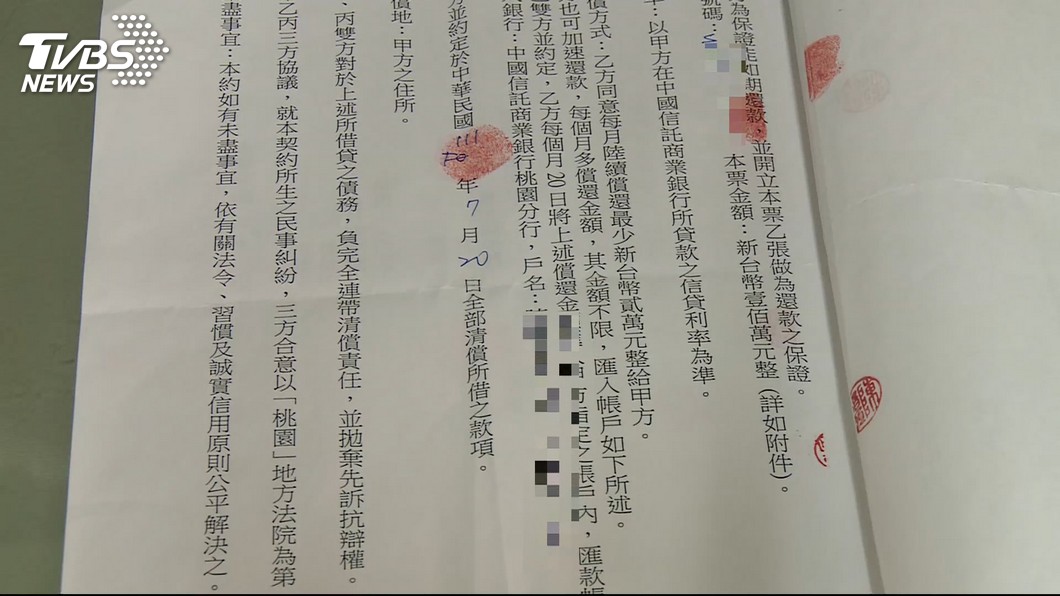 TVBS
NEWS
為保證能如期還款，並開立本票乙張做為還款之保證。
號碼：
本票金額：新台幣壹佰萬元整（詳如附件）。
：以甲方在中國信託商業銀行所貸款之信貸利率為準。
償方式：乙方同意每月陸續償還最少新台幣貳萬元整給甲方。
也可加速還款，每個月多償還金額，其金額不限，匯入帳戶如下所述。
雙方並約定，乙方每個月20日將上述償還金
指定之帳戶內，匯款帳
銀行：中國信託商業銀行桃園分行，戶名：
方並約定於中華民國
年7月20日全部清償所借之款項。
償地：甲方之住所。
、丙雙方對於上述所借貸之債務，負完全連帶清償責任，並拋棄先訴抗辯權。
乙丙三方協議，就本契約所生之民事糾紛，三方合意以「桃園」地方法院為第
盡事宜：本約如有未盡事宜，依有關法令、習慣及誠實信用原則公平解決之。